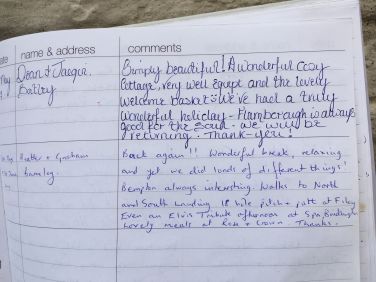 name & address
comments
Dean & Jacqui.
Batley
Simply beautiful! A wonderful cosy
cottage, very well equipt and the lovely
welcome basket. We've had a truly
wonderful holiday - Flamborough is always
good for the soul - we will be
returning. Thank-you!
& Graham
Barnsley.
Back again!! Wonderful break, relaxing
and yet we did loads of different things!
Bempton always interesting. Walks to North
and South Landing. 18 hole pitch & putt at Filey
Even an Elvis Tribute afternoon at Spa, Bridlington
Lovely meals at Rose & Crown. Thanks.